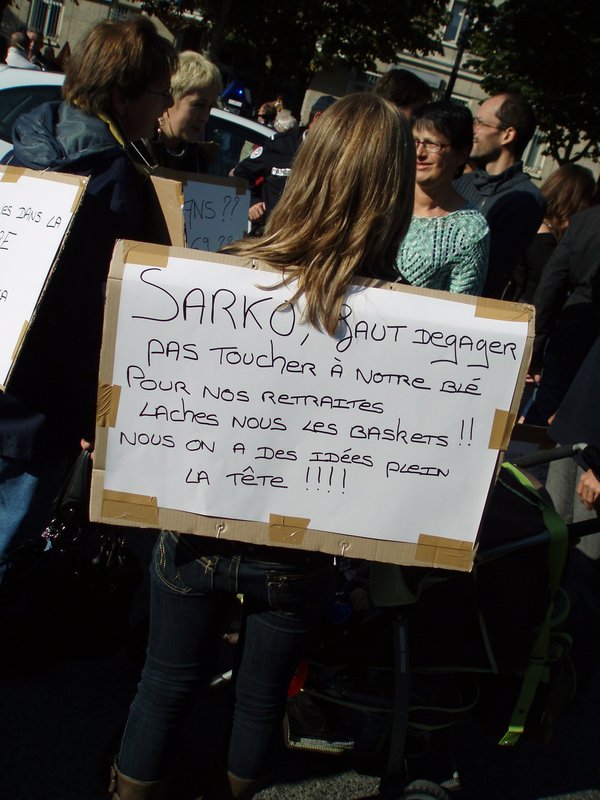 ES DANS LA
NS ??
SARKO, FAUT DEGAGER
PAS TOUCHER À NOTRE BLÉ
POUR NOS RETRAITES
LACHES NOUS LES BASKETS !!
NOUS ON A DES IDÉES PLEIN
LA TÊTE !!!!